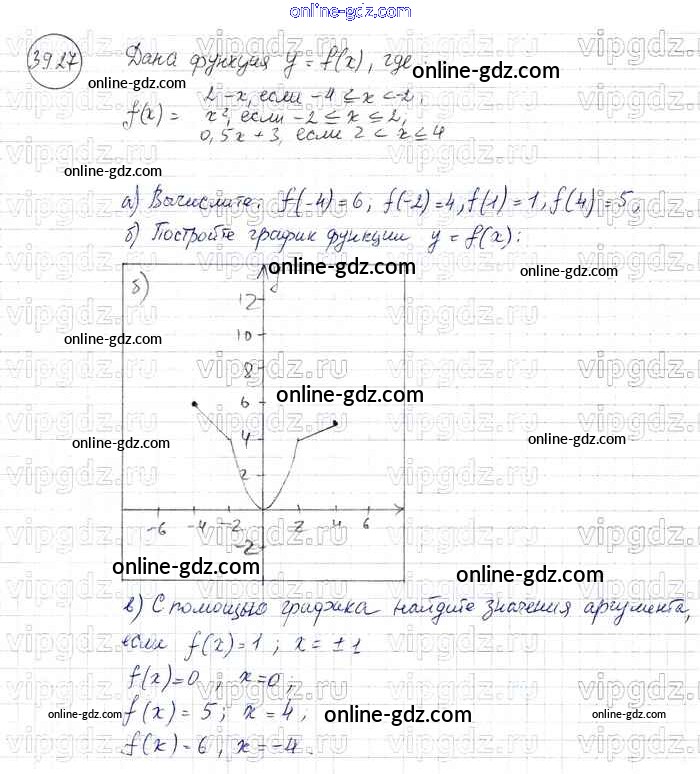 online-gdz.com
39.27 Дана функция y = f(x), где
online-gdz.com
online-gdz.com
2-x, если -4 ≤ x < -2,
f(x) = x², если -2 ≤ x ≤ 2,
0,5x + 3, если 2 < x ≤ 4
online-gdz.com
online-gdz.com
а) Вычислите: f(-4) = 6, f(-2) = 4, f(1) = 1, f(4) = 5,
б) Постройте график функции y = f(x):
vipgdz.ru
online-gdz.com
online-gdz.com
б) y
12
10
online-gdz.com
8
vipgdz.ru
online-gdz.com
6
4
online-gdz.com
online-gdz.com
2
-6 -4 -2 2 4 6
-2
vipgdz.ru
online-gdz.com
online-gdz.com
в) С помощью графика найдите значения аргумента,
если f(x) = 1; x = ±1
f(x) = 0; x = 0;
f(x) = 5; x = 4,
online-gdz.com
online-gdz.com
online-gdz.com
f(x) = 6, x = -4.